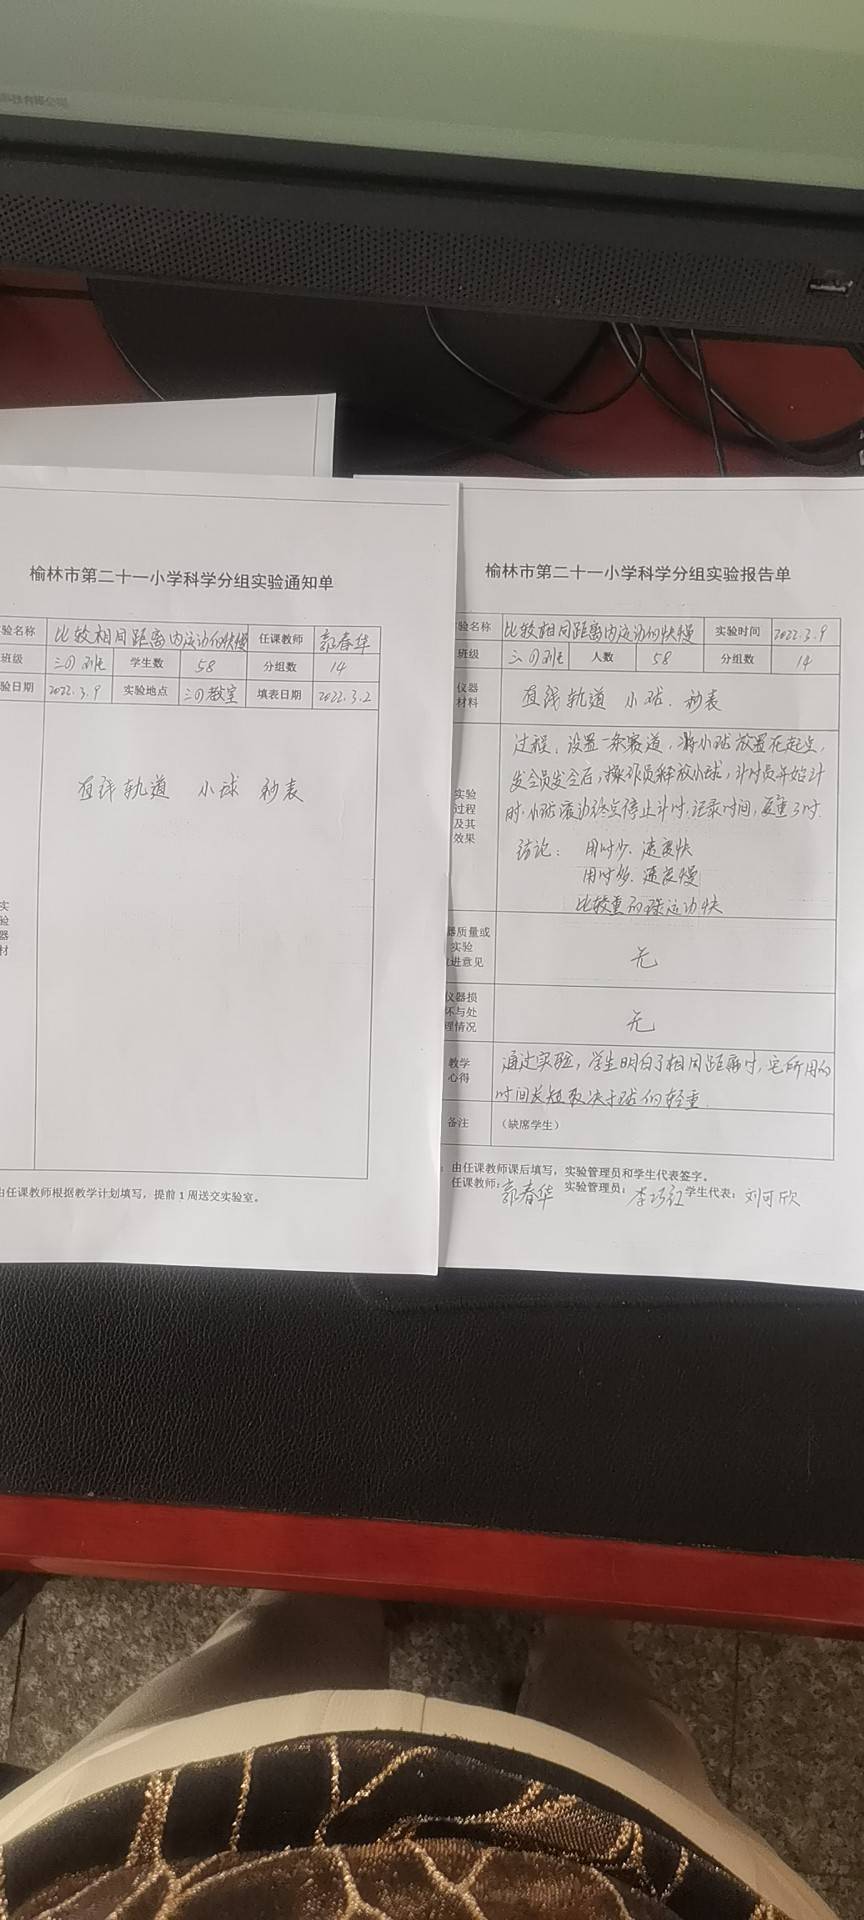 科技有限公司
榆林市第二十一小学科学分组实验通知单
验名称 比较相同距离内运动的快慢 任课教师 郭春华
班级 学生数 58 分组数 14
验日期 2022.3.9 实验地点 教室 填表日期 2022.3.2
直线轨道 小球 秒表
实
验
器
材
由任课教师根据教学计划填写，提前1周送交实验室。
榆林市第二十一小学科学分组实验报告单
验名称 比较相同距离内运动的快慢 实验时间 2022.3.9
班级 人数 58 分组数 14
仪器
材料
直线轨道 小球. 秒表
实验
过程
及其
效果
过程：设置一条赛道，将小球放置在起点，
发令员发令后，操作员释放小球，计时员开始计
时.小球滚动终点停止计时.记录时间，重3时.
结论： 用时少.速度快
用时多.速度慢
比较重的球运动快
器质量或
实验
进意见
无
仪器损
坏与处
理情况
无
教学
心得
通过实验，学生明白了相同距离时，它所用的
时间长短取决于球的轻重.
备注 （缺席学生）
：由任课教师课后填写，实验管理员和学生代表签字。
任课教师：郭春华 实验管理员：李巧红 学生代表：刘可欣